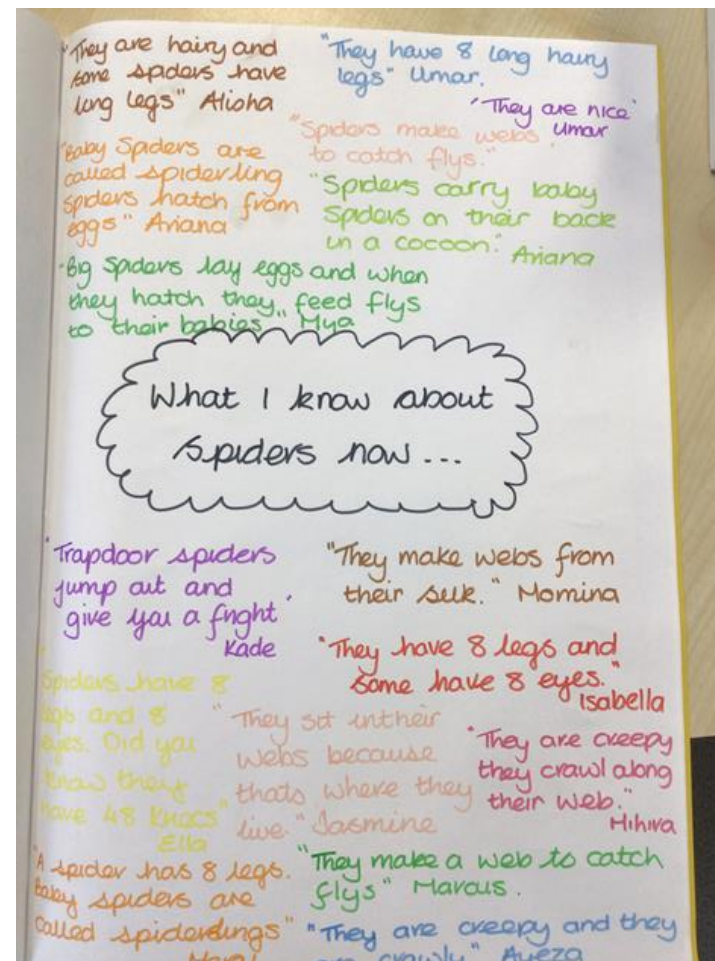 "They are hairy and
some spiders have
long legs" Alisha
"They have 8 long hairy
legs" Umar.
"They are nice"
Umar
"Spiders make webs
to catch flys."
"Baby Spiders are
called spiderling
spiders hatch from
eggs" Ariana
"Spiders carry baby
spiders on their back
in a cocoon." Ariana
"Big Spiders lay eggs and when
they hatch they feed flys
to their babies" Mya
What I know about
spiders now...
"Trapdoor spiders
jump out and
give you a fright"
Kade
"They make webs from
their silk." Momina
"They have 8 legs and
some have 8 eyes."
Isabella
Spiders have 8
legs and 8
eyes. Did you
know they
have 48 knees"
Ella
"They sit intheir
webs because
thats where they
live." Jasmine
"They are creepy
they crawl along
their web."
"A spider has 8 legs.
Baby spiders are
called spiderlings"
"They make a web to catch
flys" Marcus.
"They are creepy and they
are crawly" Ayeza